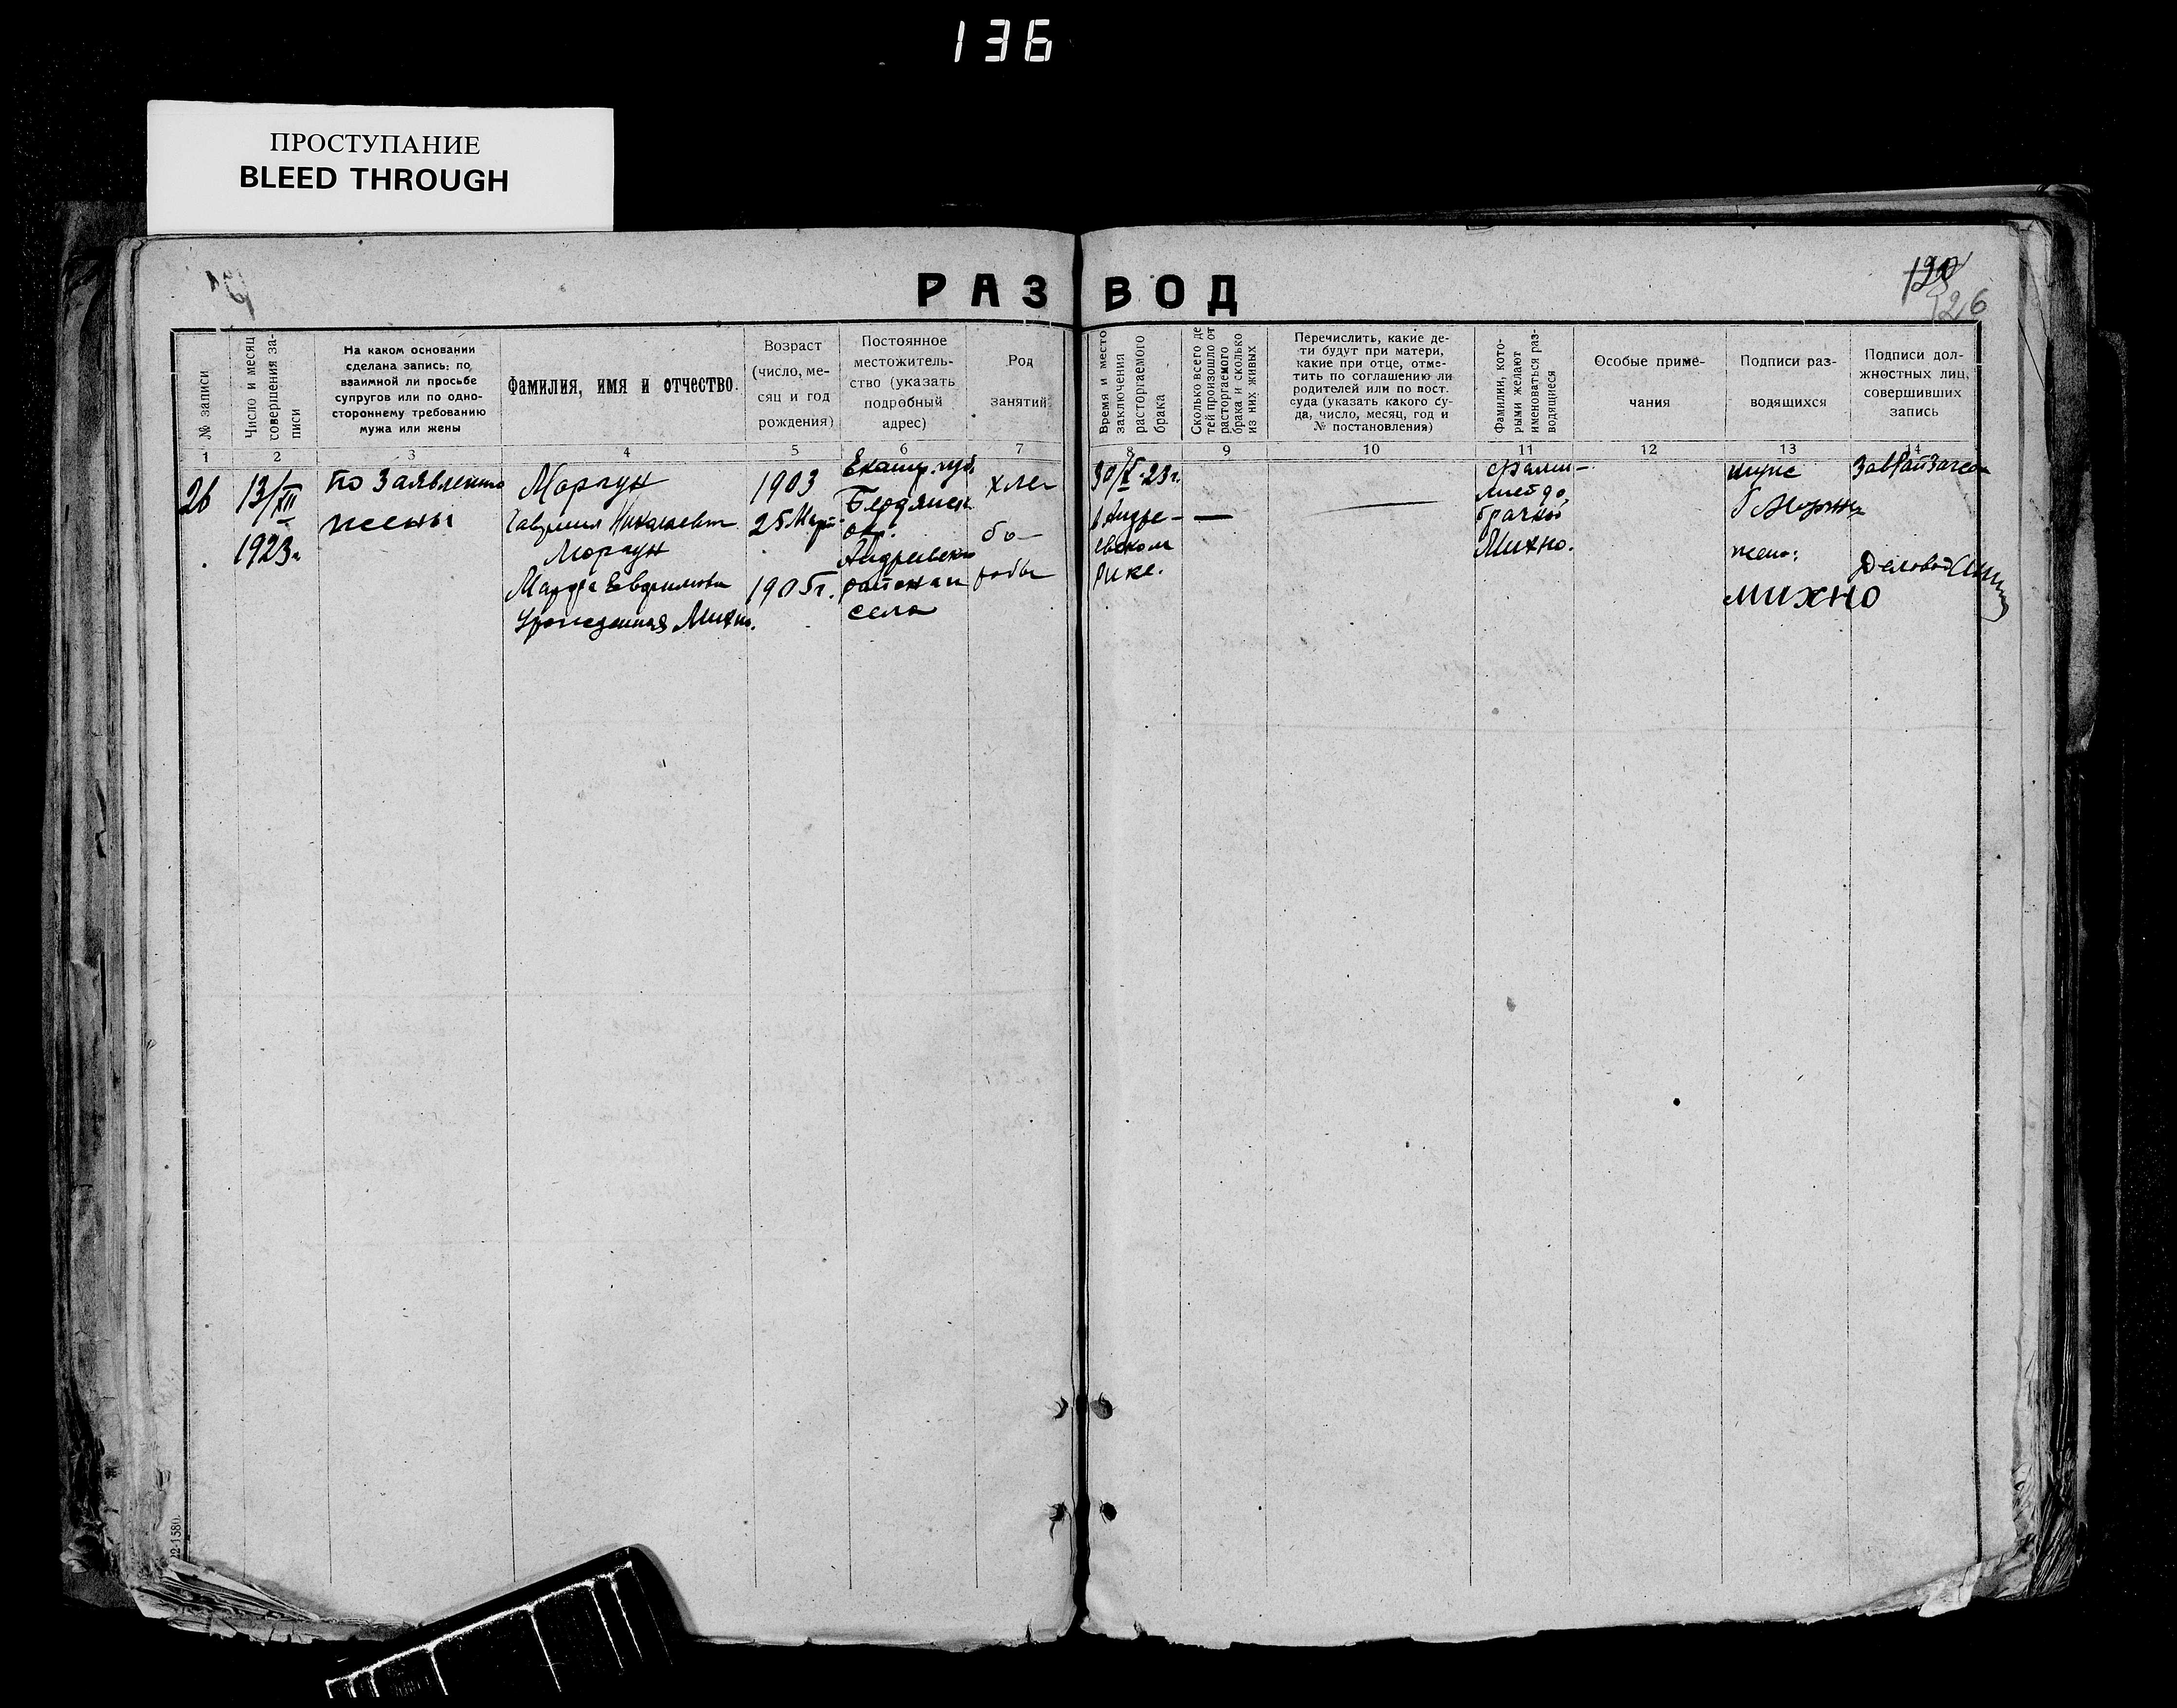 136
ПРОСТУПАНИЕ
BLEED THROUGH
РАЗВОД
120
126
№ записи
Число и месяц
совершения за-
писи
На каком основании
сделана запись: по
взаимной ли просьбе
супругов или по одно-
стороннему требованию
мужа или жены
Фамилия, имя и отчество.
Возраст
(число, ме-
сяц и год
рождения)
Постоянное
местожитель-
ство (указать
подробный
адрес)
Род
занятий
Время и место
заключения
расторгаемого
брака
Сколько всего де
тей произошло от
расторгаемого
брака и сколько
из них живых
Перечислить, какие де-
ти будут при матери,
какие при отце, отме-
тить по соглашению ли
родителей или по пост.
суда (указать какого су-
да, число, месяц, год и
№ постановления)
Фамилии, кото-
рыми желают
именоваться раз-
водящиеся
Особые приме-
чания
Подписи раз-
водящихся
Подписи дол-
жностных лиц,
совершивших
запись
1 2 3 4 5 6 7 8 9 10 11 12 13 14
26
13/XII
1923г.
по заявлению
жены
Моргун
Гавриил Николаевич
Моргун
Марфа Евфимовна
Урожденная Михно.
1903
25 Март.
1905г.
Екатер. губ.
Бердянск
ок.
Андреевско
района
села
хле-
бо-
робы
30/X-23г.
в Андре-
евском
Рике.
—
Фами-
лией до
брачной
Михно.
муж
Г Моргун
жена:
МИХНО
ЗавРайЗагсом
Деловод
22-1580.